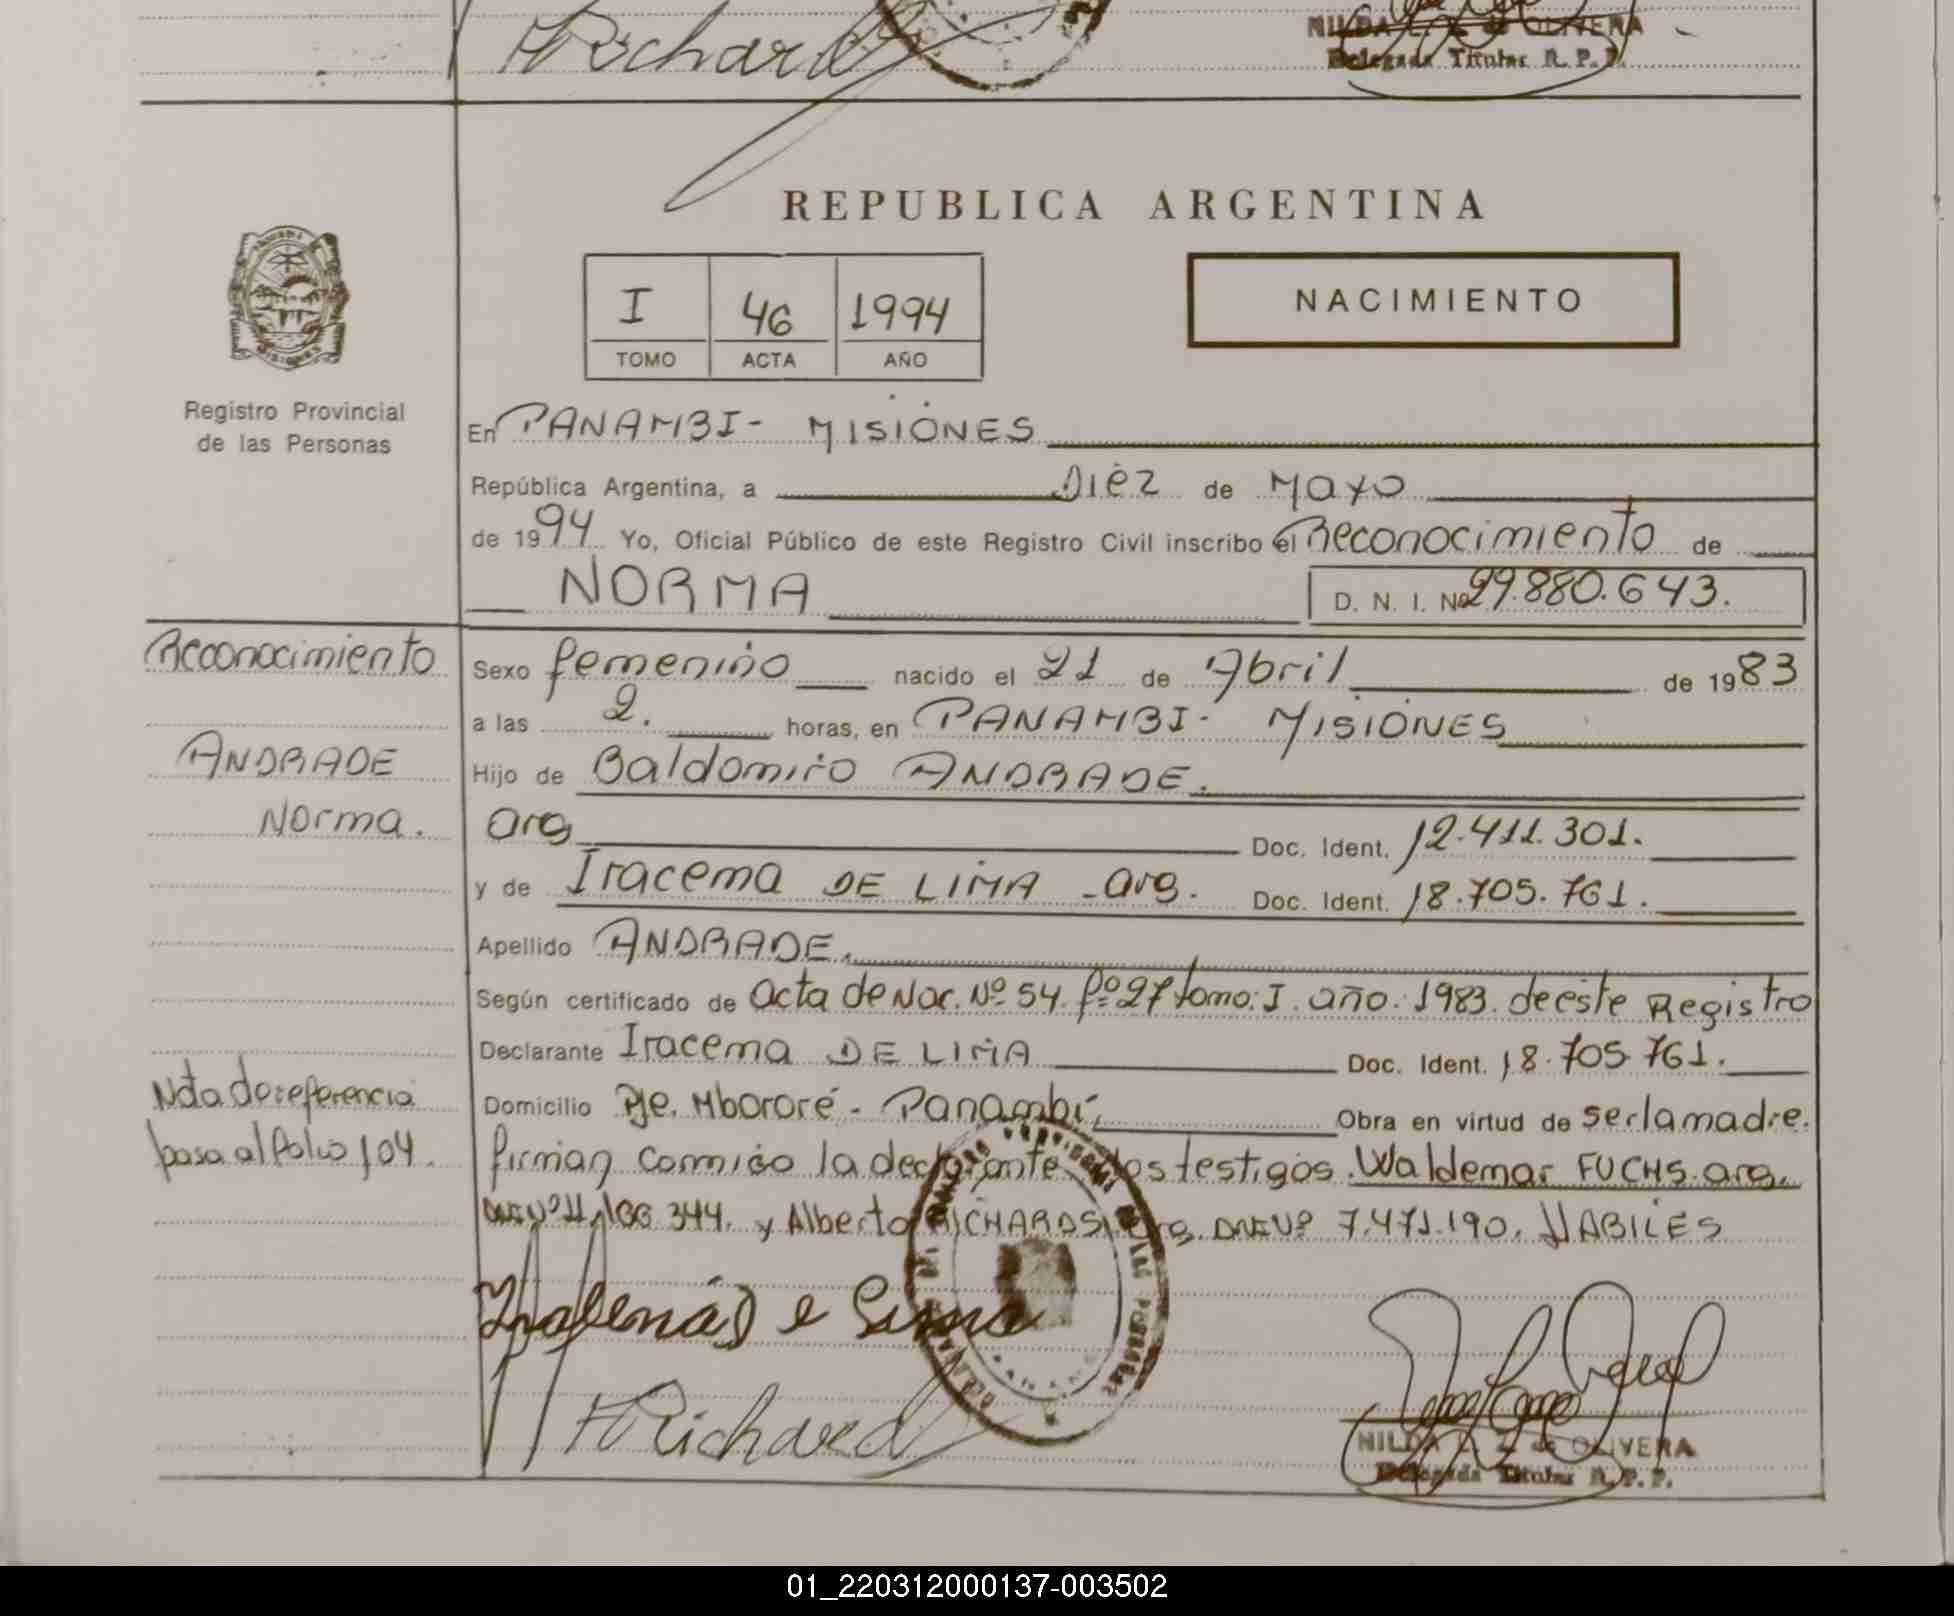 Richard
NILDA L. Z. de OLIVERA
Delegada Titular R. P. P.
REPUBLICA ARGENTINA
I 46 1994
TOMO ACTA AÑO
NACIMIENTO
Registro Provincial
de las Personas
En PANAMBI - MISIONES
República Argentina, a Diéz de Mayo
de 1994 Yo, Oficial Público de este Registro Civil inscribo el Reconocimiento de
NORMA D. N. I. Nº 29.880.643.
Reconocimiento
ANDRADE
Norma.
Nota de referencia
pasa al folio 104.
Sexo femenino nacido el 21 de Abril de 1983
a las 2. horas, en PANAMBI - MISIONES
Hijo de Baldomiro ANDRADE.
arg Doc. Ident. 12.411.301.
y de Iracema DE LIMA - arg. Doc. Ident. 18.705.761.
Apellido ANDRADE.
Según certificado de Acta de Nac. Nº 54. fº 27 tomo: I. año: 1983. de este Registro
Declarante Iracema DE LIMA Doc. Ident. 18.705.761.
Domicilio Pje. Mbororé - Panambí, Obra en virtud de ser la madre.
firman conmigo la declarante y dos testigos. Waldemar FUCHS. arg.
DNI Nº 344. y Alberto RICHARDS arg. DNI Nº 7.471.190. HABILES
Richard
NILDA L. Z. de OLIVERA
Delegada Titular R. P. P.
01_220312000137-003502